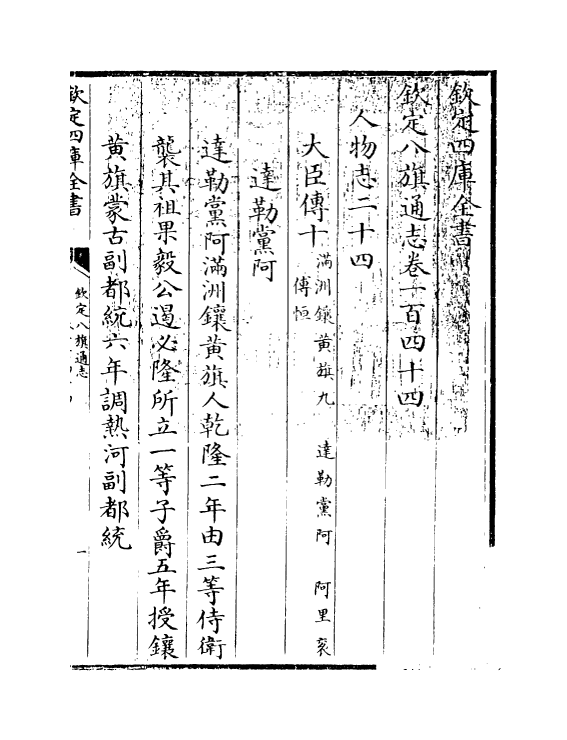 欽定四庫全書
欽定八旗通志卷一百四十四
人物志二十四
大臣傳十 滿洲鑲黃旗九 達勒黨阿 阿里袞
傅恒
達勒黨阿
達勒黨阿滿洲鑲黃旗人乾隆二年由三等侍衛
襲其祖果毅公遏必隆所立一等子爵五年授鑲
黃旗蒙古副都統六年調熱河副都統
欽定四庫全書
欽定八旗通志
一